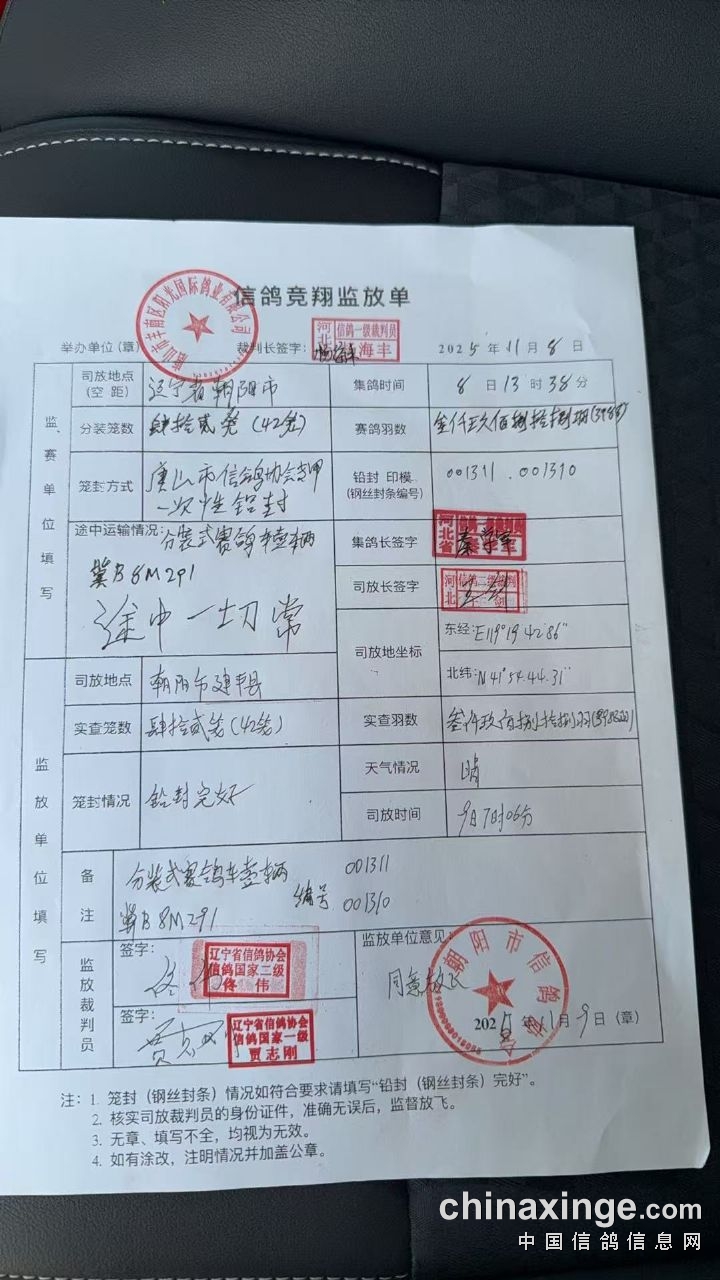 信鸽竞翔监放单
举办单位(章) 裁判长签字: 2025年11月8日
唐山市丰南区阳光国际鸽业有限公司
河北 信鸽一级裁判员 杨海丰
监赛单位填写
司放地点(空距) 辽宁省朝阳市 集鸽时间 8日13时38分
分装笼数 肆拾贰笼(42笼) 赛鸽羽数 叁仟玖佰捌拾捌羽
笼封方式 唐山市信鸽协会专用
一次性铅封
铅封 印模(钢丝封条编号) 001311 . 001310
途中运输情况: 分装式赛鸽车壹辆
冀B8M291
途中一切常
集鸽长签字 河北省 秦学军
司放长签字 河北 信鸽二级裁判
司放地坐标 东经: E119°19 42'86"
北纬: N41°54.44.31"
监放单位填写
司放地点 朝阳市建平县
实查笼数 肆拾贰笼(42笼) 实查羽数 叁仟玖佰捌拾捌羽
笼封情况 铅封完好 天气情况 晴
司放时间 9日7时06分
备注 分装式赛鸽车壹辆 编号 001311
冀B8M291 001310
监放裁判员
签字: 佟伟
辽宁省信鸽协会
信鸽国家二级
佟 伟
签字: 贾志刚
辽宁省信鸽协会
信鸽国家一级
贾志刚
监放单位意见:
同意放飞
朝阳市信鸽协会
2025年11月9日(章)
注:1. 笼封(钢丝封条)情况如符合要求请填写“铅封(钢丝封条)完好”。
2. 核实司放裁判员的身份证件,准确无误后,监督放飞。
3. 无章、填写不全,均视为无效。
4. 如有涂改,注明情况并加盖公章。
chinaxinge.com
中国信鸽信息网